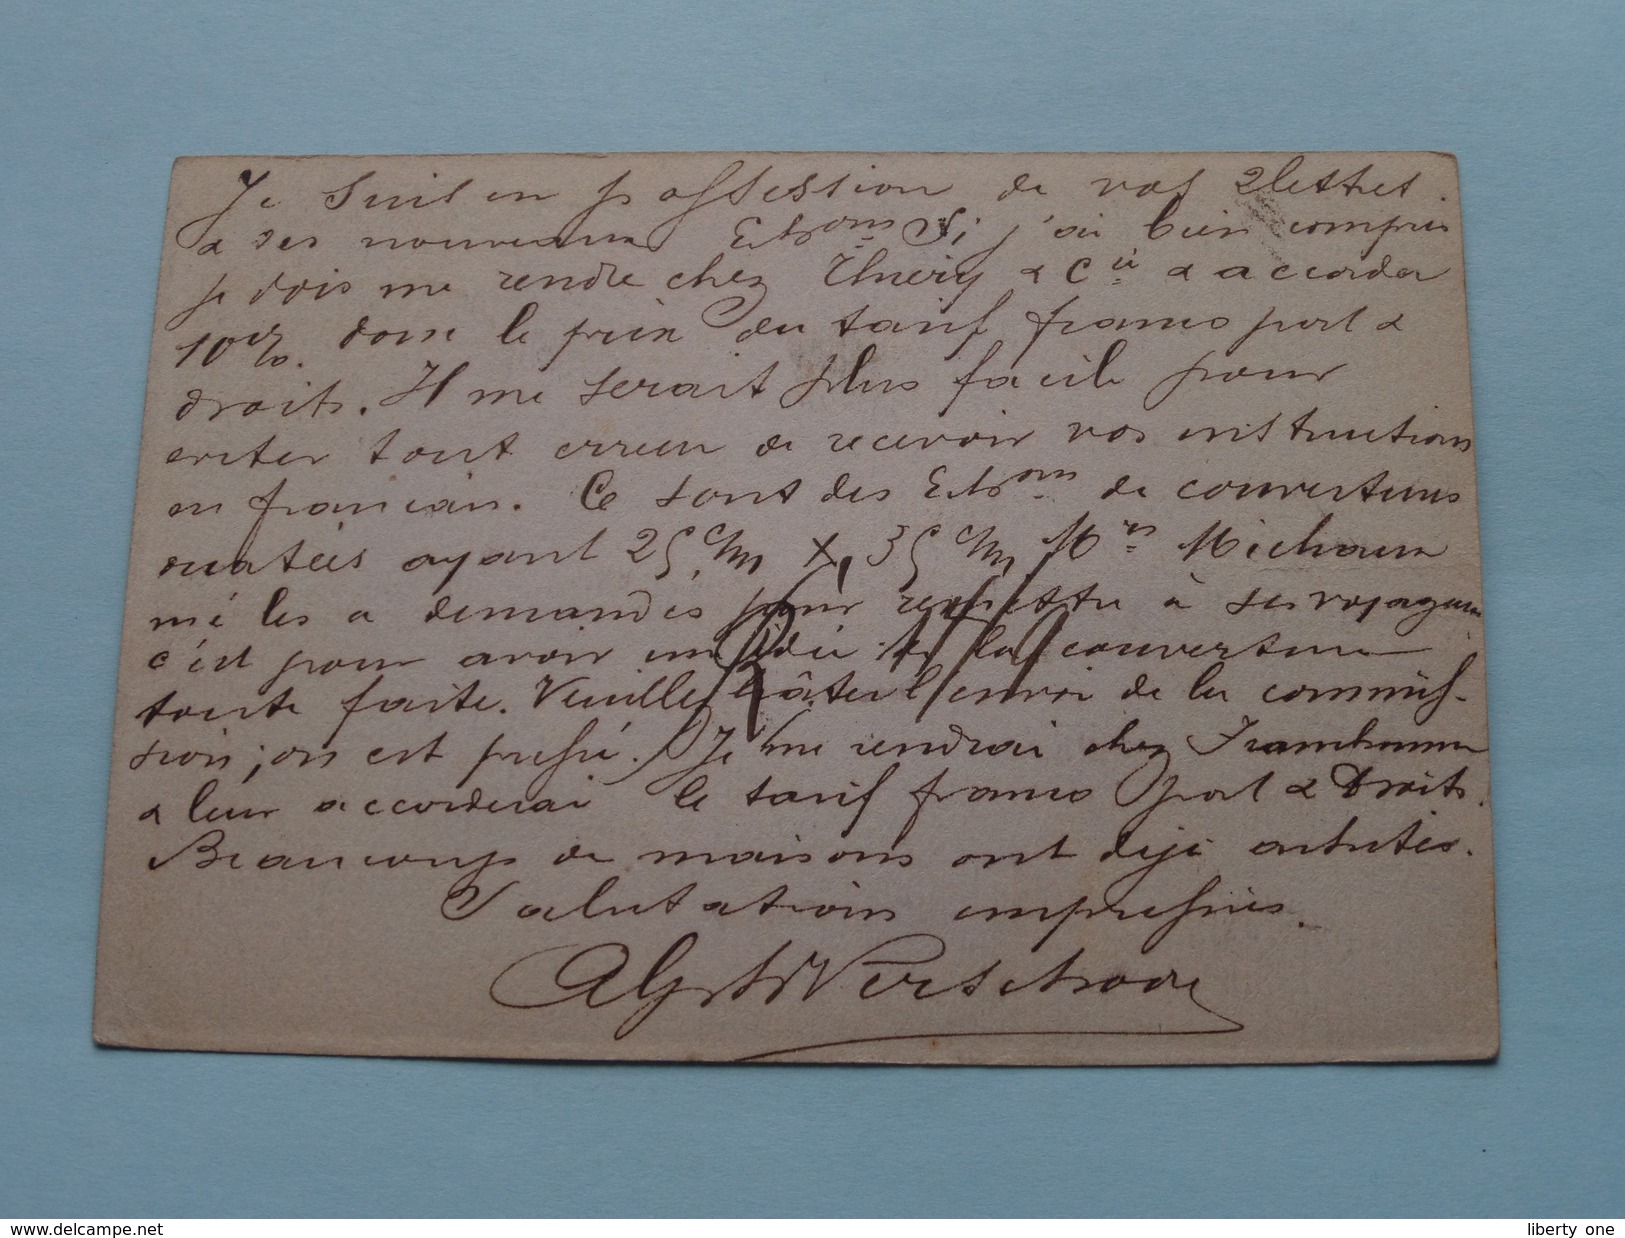 Je suis en possession de vos 2 lettres
& des nouveaux Echons Si j'ai bien compris
je dois me rendre chez Thiery & Cie & accorder
10 % dans le prix du tarif franco port &
droits. Il me serait plus facile pour
eviter tout erreur de recevoir vos instructions
en francais. Ce sont des Echons de couvertures
ouatées ayant 25 c/m X 35 c/m Mrs Michaux
me les a demandés pour remettre à ses voyageurs
c'est pour avoir une idée de la couverture
toute faite. Veuillez hâter l'envoi de la commis-
sion; on est pressé. Je me rendrai chez
& leur accorderai le tarif franco port & Droits.
Beaucoup de maisons ont déjà
Salutations empressées.
Alph Verschoore
www.delcampe.net
liberty one